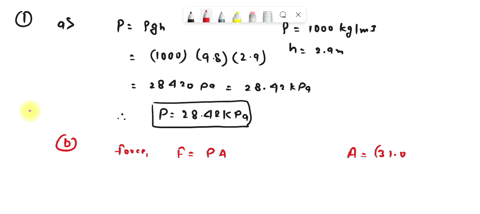 ① as P = ρgh ρ = 1000 kg/m3
= (1000) (9.8) (2.9) h = 2.9m
= 28420 Pa = 28.42 kPa
∴ P = 28.42 kPa
ⓑ force, F = PA A = (31.0